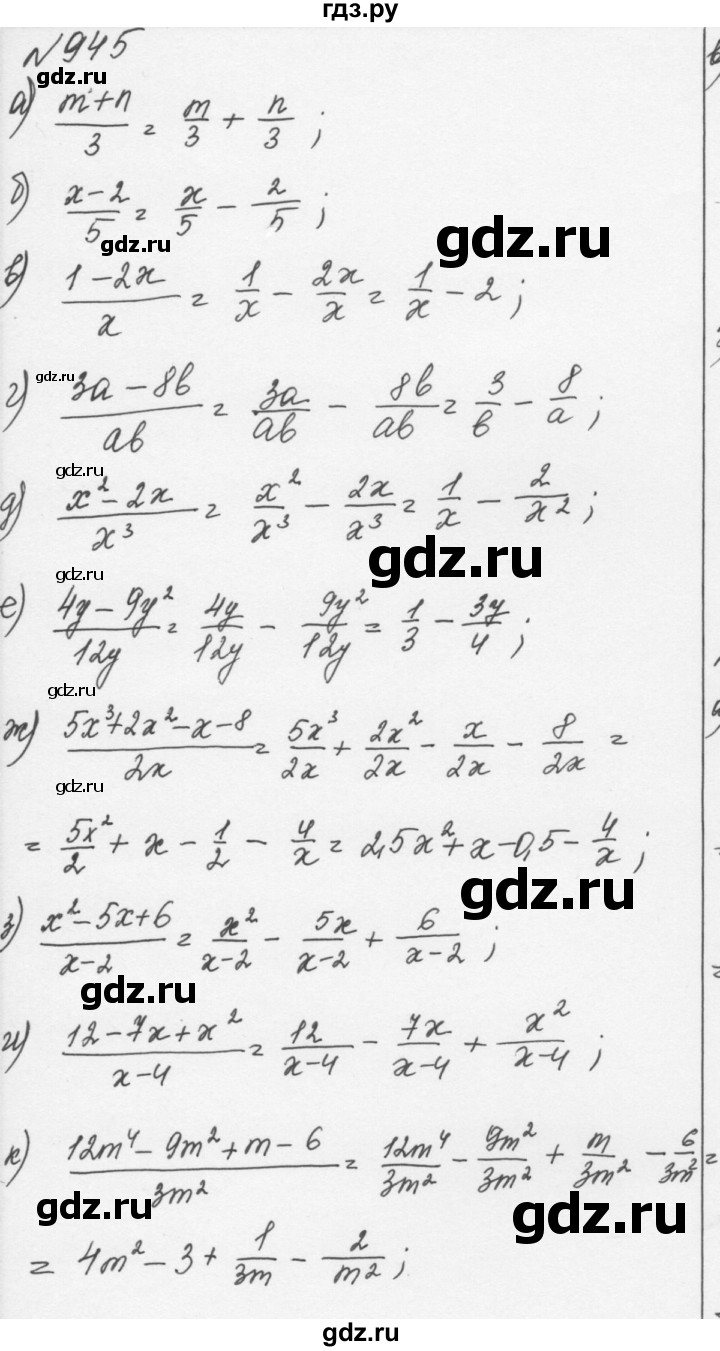 гдз.ру
№945
а) (m+n)/3 = m/3 + n/3 ;
б) (x-2)/5 = x/5 - 2/5 ;
gdz.ru
gdz.ru
в) (1-2x)/x = 1/x - 2x/x = 1/x - 2 ;
gdz.ru
г) (3a-8b)/ab = 3a/ab - 8b/ab = 3/b - 8/a ;
gdz.ru
д) (x²-2x)/x³ = x²/x³ - 2x/x³ = 1/x - 2/x² ;
gdz.ru
gdz.ru
е) (4y-9y²)/12y = 4y/12y - 9y²/12y = 1/3 - 3y/4 ;
gdz.ru
ж) (5x³+2x²-x-8)/2x = 5x³/2x + 2x²/2x - x/2x - 8/2x =
gdz.ru
= 5x²/2 + x - 1/2 - 4/x = 2,5x²+x-0,5-4/x ;
gdz.ru
з) (x²-5x+6)/(x-2) = x²/(x-2) - 5x/(x-2) + 6/(x-2) ;
gdz.ru
и) (12-7x+x²)/(x-4) = 12/(x-4) - 7x/(x-4) + x²/(x-4) ;
к) (12m⁴-9m²+m-6)/3m² = 12m⁴/3m² - 9m²/3m² + m/3m² - 6/3m² =
gdz.ru
gdz.ru
= 4m²-3+1/3m - 2/m² ;
gdz.ru